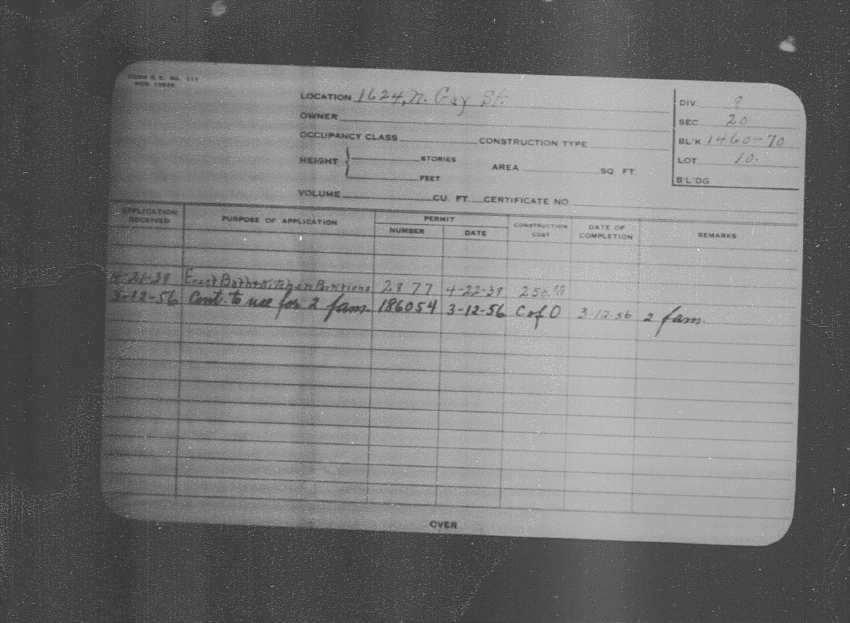 FORM B.E. No. 111
LOCATION 1624, N. Gay St.
OWNER
OCCUPANCY CLASS CONSTRUCTION TYPE
HEIGHT { STORIES AREA SQ. FT.
FEET
VOLUME CU. FT. CERTIFICATE NO.
DIV. 8
SEC 20
BL'K 1460-70
LOT 10.
B'L'DG
APPLICATION RECEIVED PURPOSE OF APPLICATION PERMIT NUMBER DATE CONSTRUCTION COST DATE OF COMPLETION REMARKS
4-21-38 Erect Bath & Kitchen Partitions 2877 4-22-38 250.00
3-12-56 Cont. to use for 2 fam. 186054 3-12-56 C of O 3-12-56 2 fam.
OVER